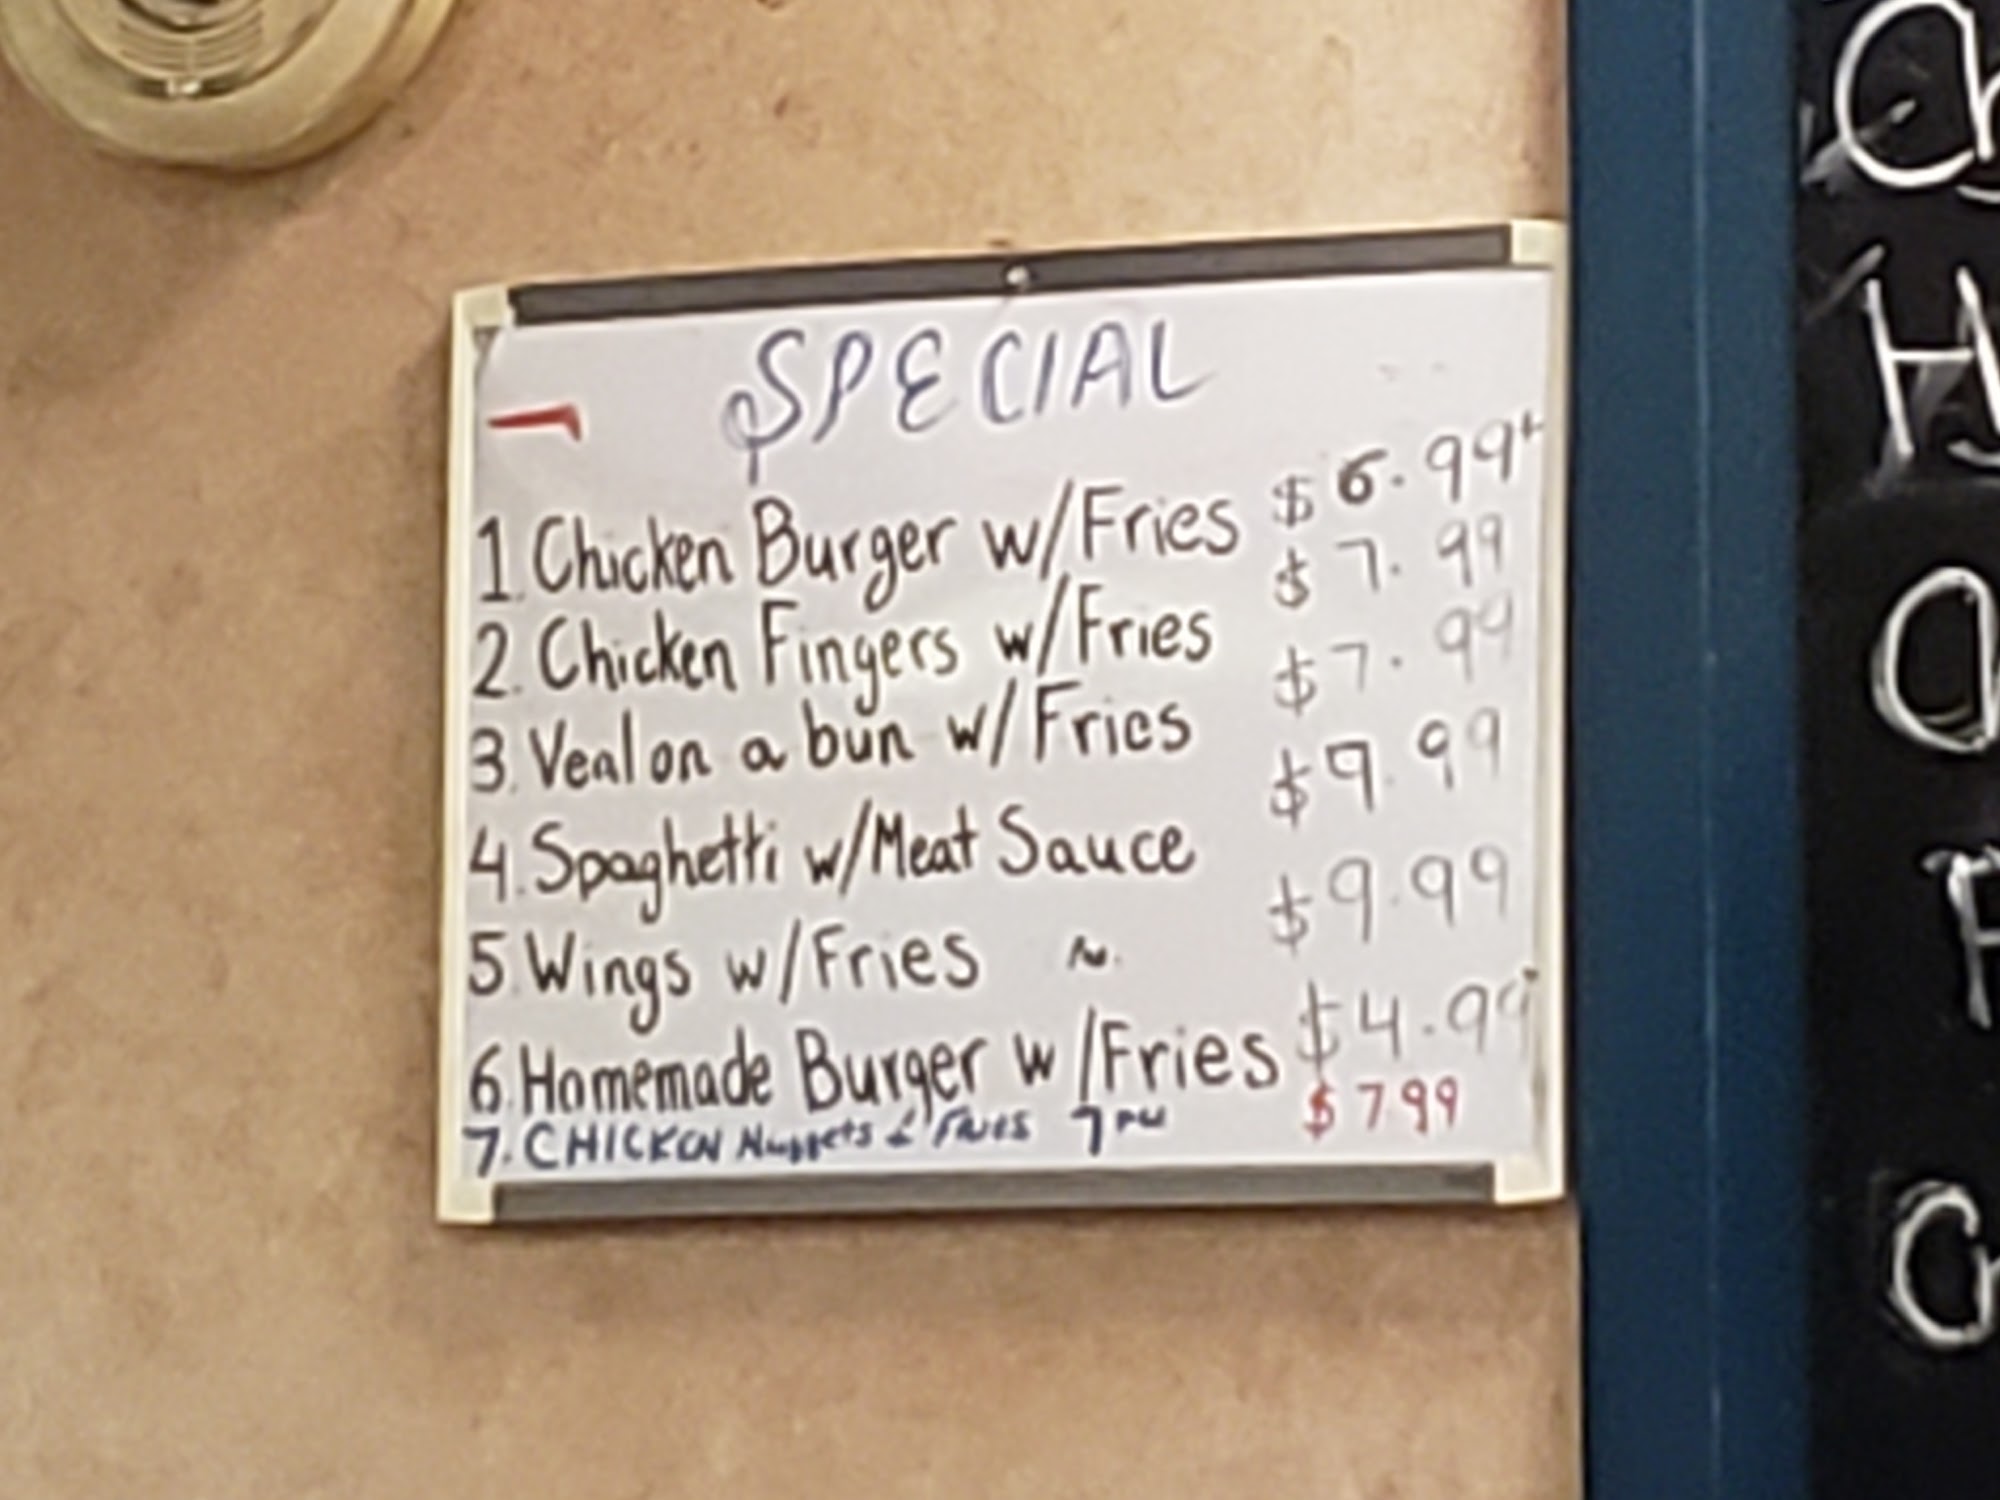 SPECIAL
1. Chicken Burger w/Fries $6.99+
2. Chicken Fingers w/Fries $7.99
3. Veal on a bun w/Fries $7.99
4. Spaghetti w/Meat Sauce $9.99
5. Wings w/Fries $9.99
6. Homemade Burger w/Fries $4.99
7. CHICKEN Nuggets & Fries $799